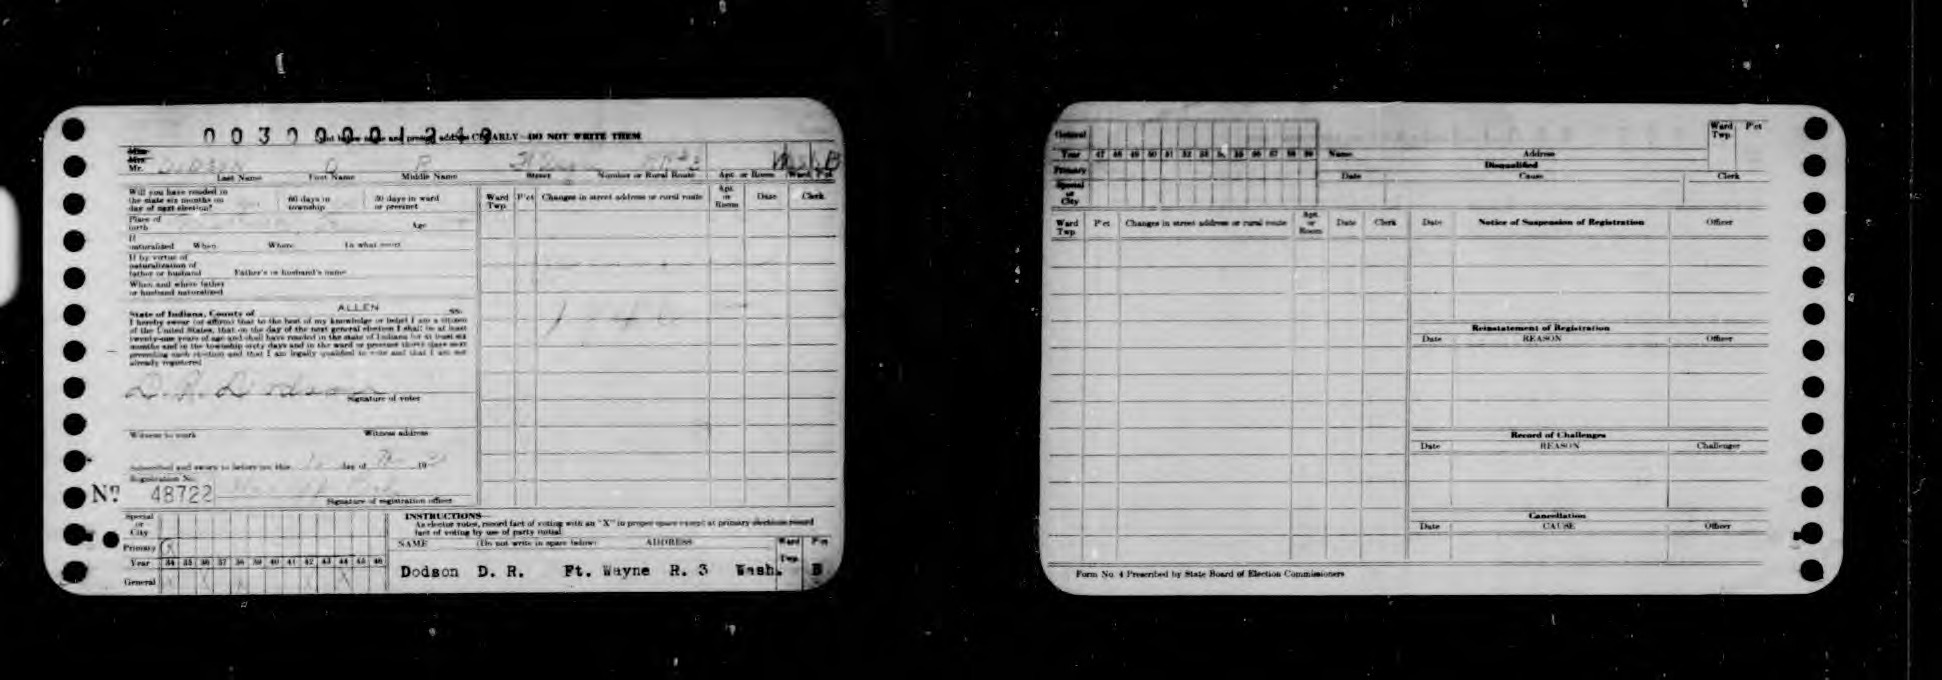 00300001249
Print below name and present address CLEARLY—DO NOT WRITE THEM
Miss
Mrs.
Mr. DODSON D R Ft Wayne RR #3 Wash B
Last Name First Name Middle Name Street Number or Rural Route Apt. or Room Ward Pct
Will you have resided in
the state six months on
day of next election?
60 days in
township
30 days in ward
or precinct
Ward
Twp.
P'ct
Changes in street address or rural route
Apt.
or
Room
Date
Clerk
Place of
birth
Age
If
naturalized When Where In what court
If by virtue of
naturalization of
father or husband Father's or husband's name
When and where father
or husband naturalized
State of Indiana, County of ALLEN ss.
I hereby swear (or affirm) that to the best of my knowledge or belief I am a citizen
of the United States, that on the day of the next general election I shall be at least
twenty-one years of age and shall have resided in the state of Indiana for at least six
months and in the township sixty days and in the ward or precinct thirty days next
preceding such election and that I am legally qualified to vote and that I am not
already registered
D. R. Dodson
Signature of voter
Witness to mark Witness address
Subscribed and sworn to before me this day of 19
Registration No.
Nº 48722
Signature of registration officer
Special
or
City
Primary X
Year 34 35 36 37 38 39 40 41 42 43 44 45 46
General X X X X X
INSTRUCTIONS—
As elector votes, record fact of voting with an "X" in proper space except at primary elections record
fact of voting by use of party initial.
NAME (Do not write in space below) ADDRESS Ward P'ct
Twp.
Dodson D. R. Ft. Wayne R. 3 Wash. B
General
Year 47 48 49 50 51 52 53 54 55 56 57 58 59
Primary
Special
or
City
Name Address
Ward
Twp.
P'ct
Disqualified
Date Cause Clerk
Ward
Twp.
P'ct
Changes in street address or rural route
Apt.
or
Room
Date Clerk
Date Notice of Suspension of Registration Officer
Reinstatement of Registration
Date REASON Officer
Record of Challenges
Date REASON Challenger
Cancellation
Date CAUSE Officer
Form No. 4 Prescribed by State Board of Election Commissioners